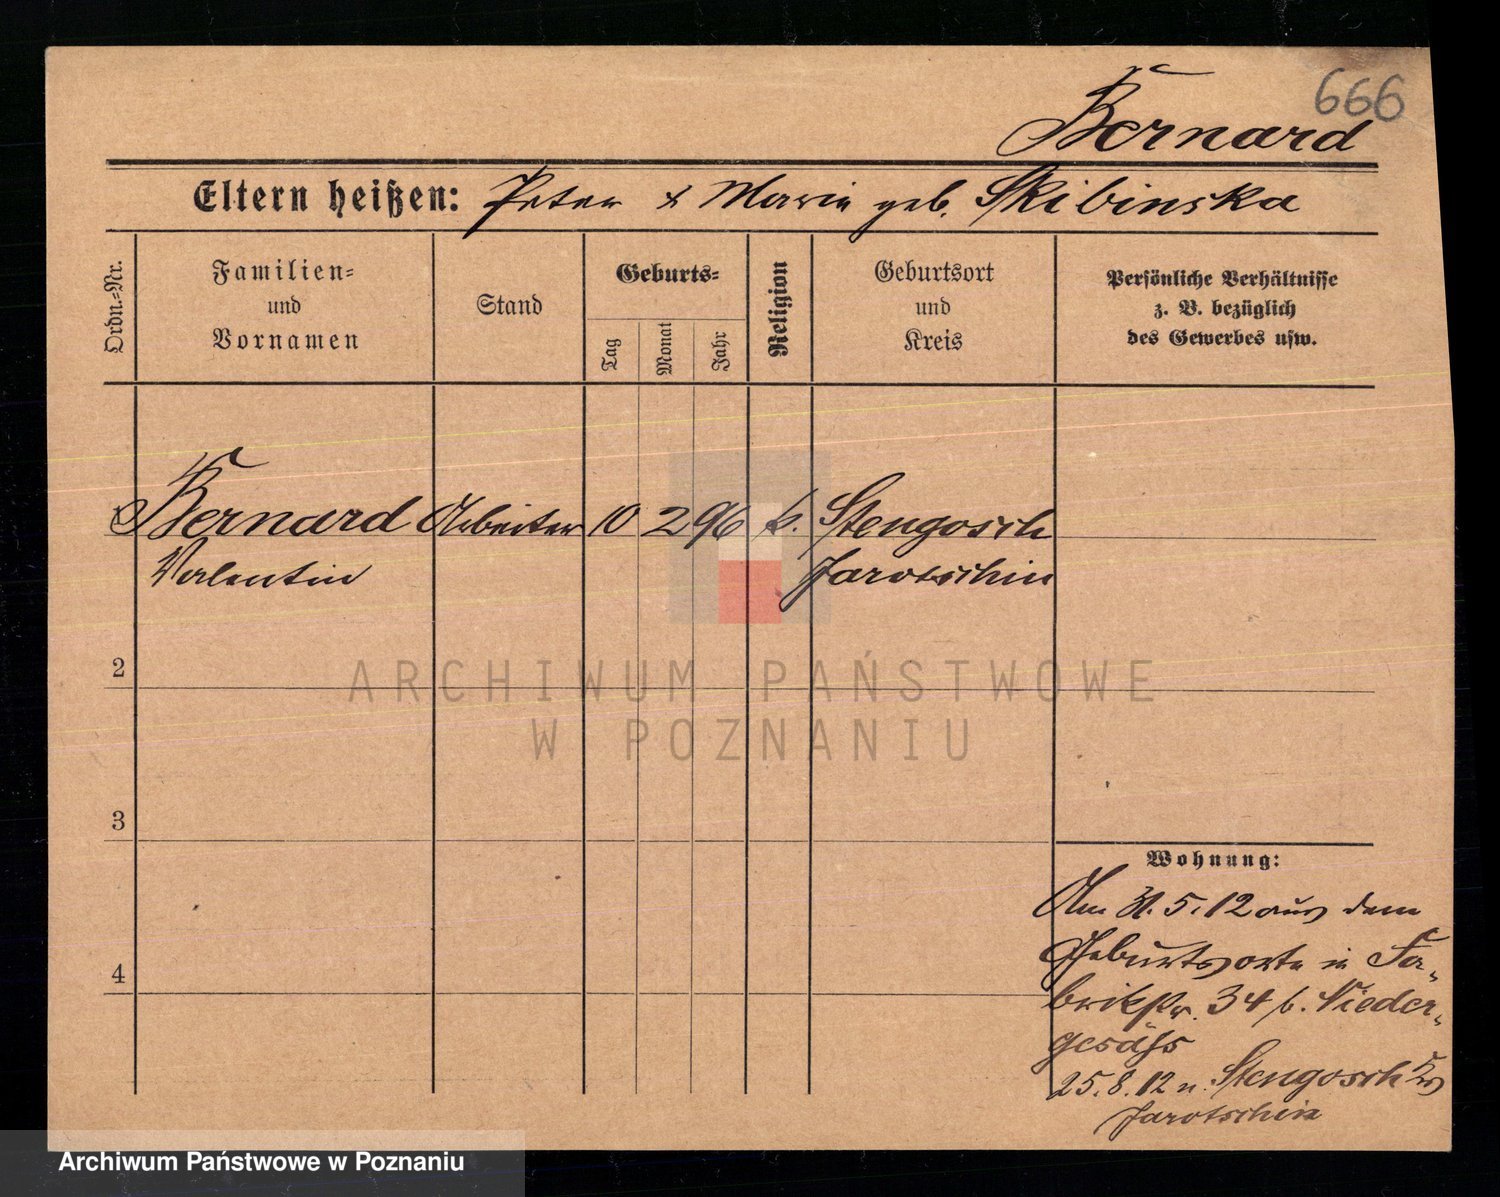 666
Bernard
Eltern heißen: Peter & Marie geb. Skibinska
Ordn.-Nr.
Familien-
und
Vornamen
Stand
Geburts-
Tag
Monat
Jahr
Religion
Geburtsort
und
Kreis
Persönliche Verhältnisse
z. B. bezüglich
des Gewerbes usw.
1 Bernard Arbeiter 10 2 96 k. Stengosch
Valentin Jarotschin
2
3
4
Wohnung:
Am 31.5.12 aus dem
Geburtsorte in Fa-
brikstr. 34 b. Nieder-
gesäss
25.8.12 n. Stengosch Krs
Jarotschin
ARCHIWUM PAŃSTWOWE
W POZNANIU
Archiwum Państwowe w Poznaniu